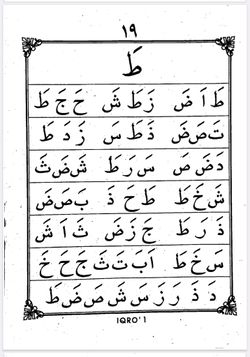 ١٩
طَ
طَ اَ ضَ زَ طَ شَ حَ جَ طَ
تَ صَ ضَ ذَ طَ سَ زَ دَ طَ
دَ ضَ صَ سَ رَ طَ شَ ضَ ثَ
شَ خَ طَ طَ حَ ذَ بَ صَ ضَ
ذَ رَ طَ جَ زَ ضَ ثَ اَ شَ
سَ خَ طَ اَ بَ تَ ثَ جَ حَ خَ
دَ ذَ رَ زَ سَ شَ صَ ضَ طَ
IQRO' 1